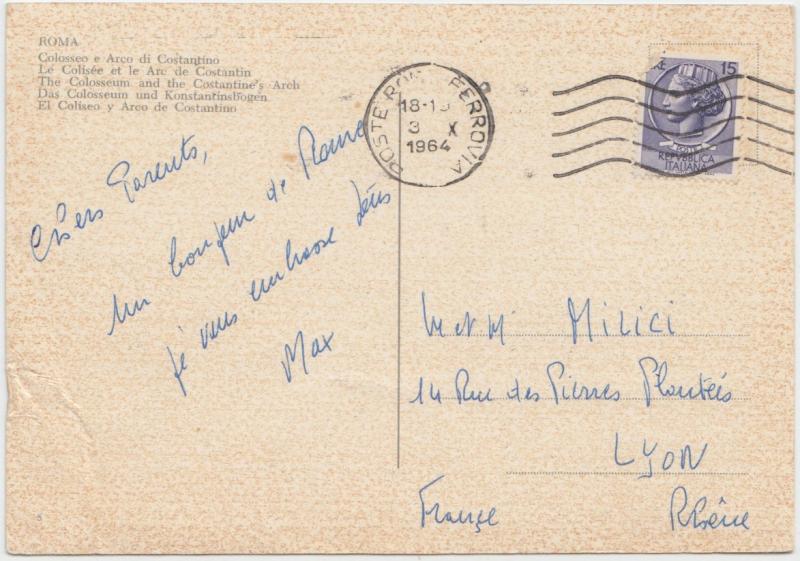 ROMA
Colosseo e Arco di Costantino
Le Colisée et le Arc de Constantin
The Colosseum and the Costantine's Arch
Das Colosseum und Konstantinsbogen
El Coliseo y Arco de Costantino
POSTE ROMA FERROVIA
18-19
3 X
1964
15
POSTE
REPVBBLICA
ITALIANA
Chers Parents,
un bonjour de Rome
je vous embrasse
Max
M et Mme MILICI
14 Rue des Pierres Plantées
LYON
France Rhône
5